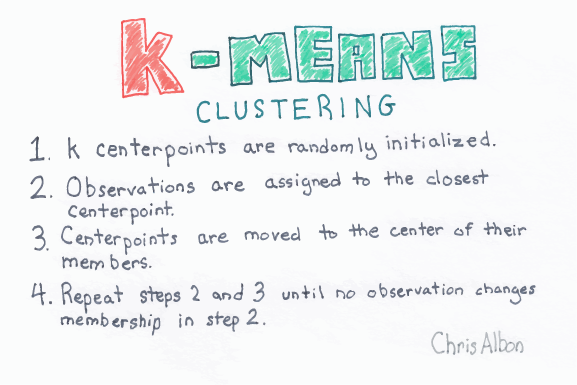 k-MEANS
CLUSTERING
1. k centerpoints are randomly initialized.
2. Observations are assigned to the closest
centerpoint.
3. Centerpoints are moved to the center of their
members.
4. Repeat steps 2 and 3 until no observation changes
membership in step 2.
Chris Albon